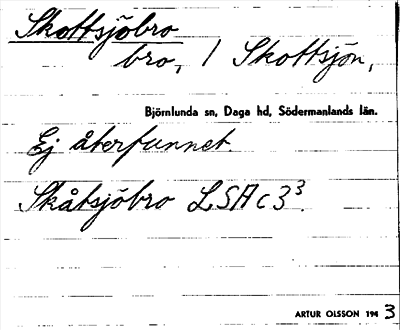 Skottsjöbro
bro, / Skottsjön,
Björnlunda sn, Daga hd, Södermanlands län.
Ej återfunnet.
Skåtsjöbro LSA c 3³.
ARTUR OLSSON 194 3